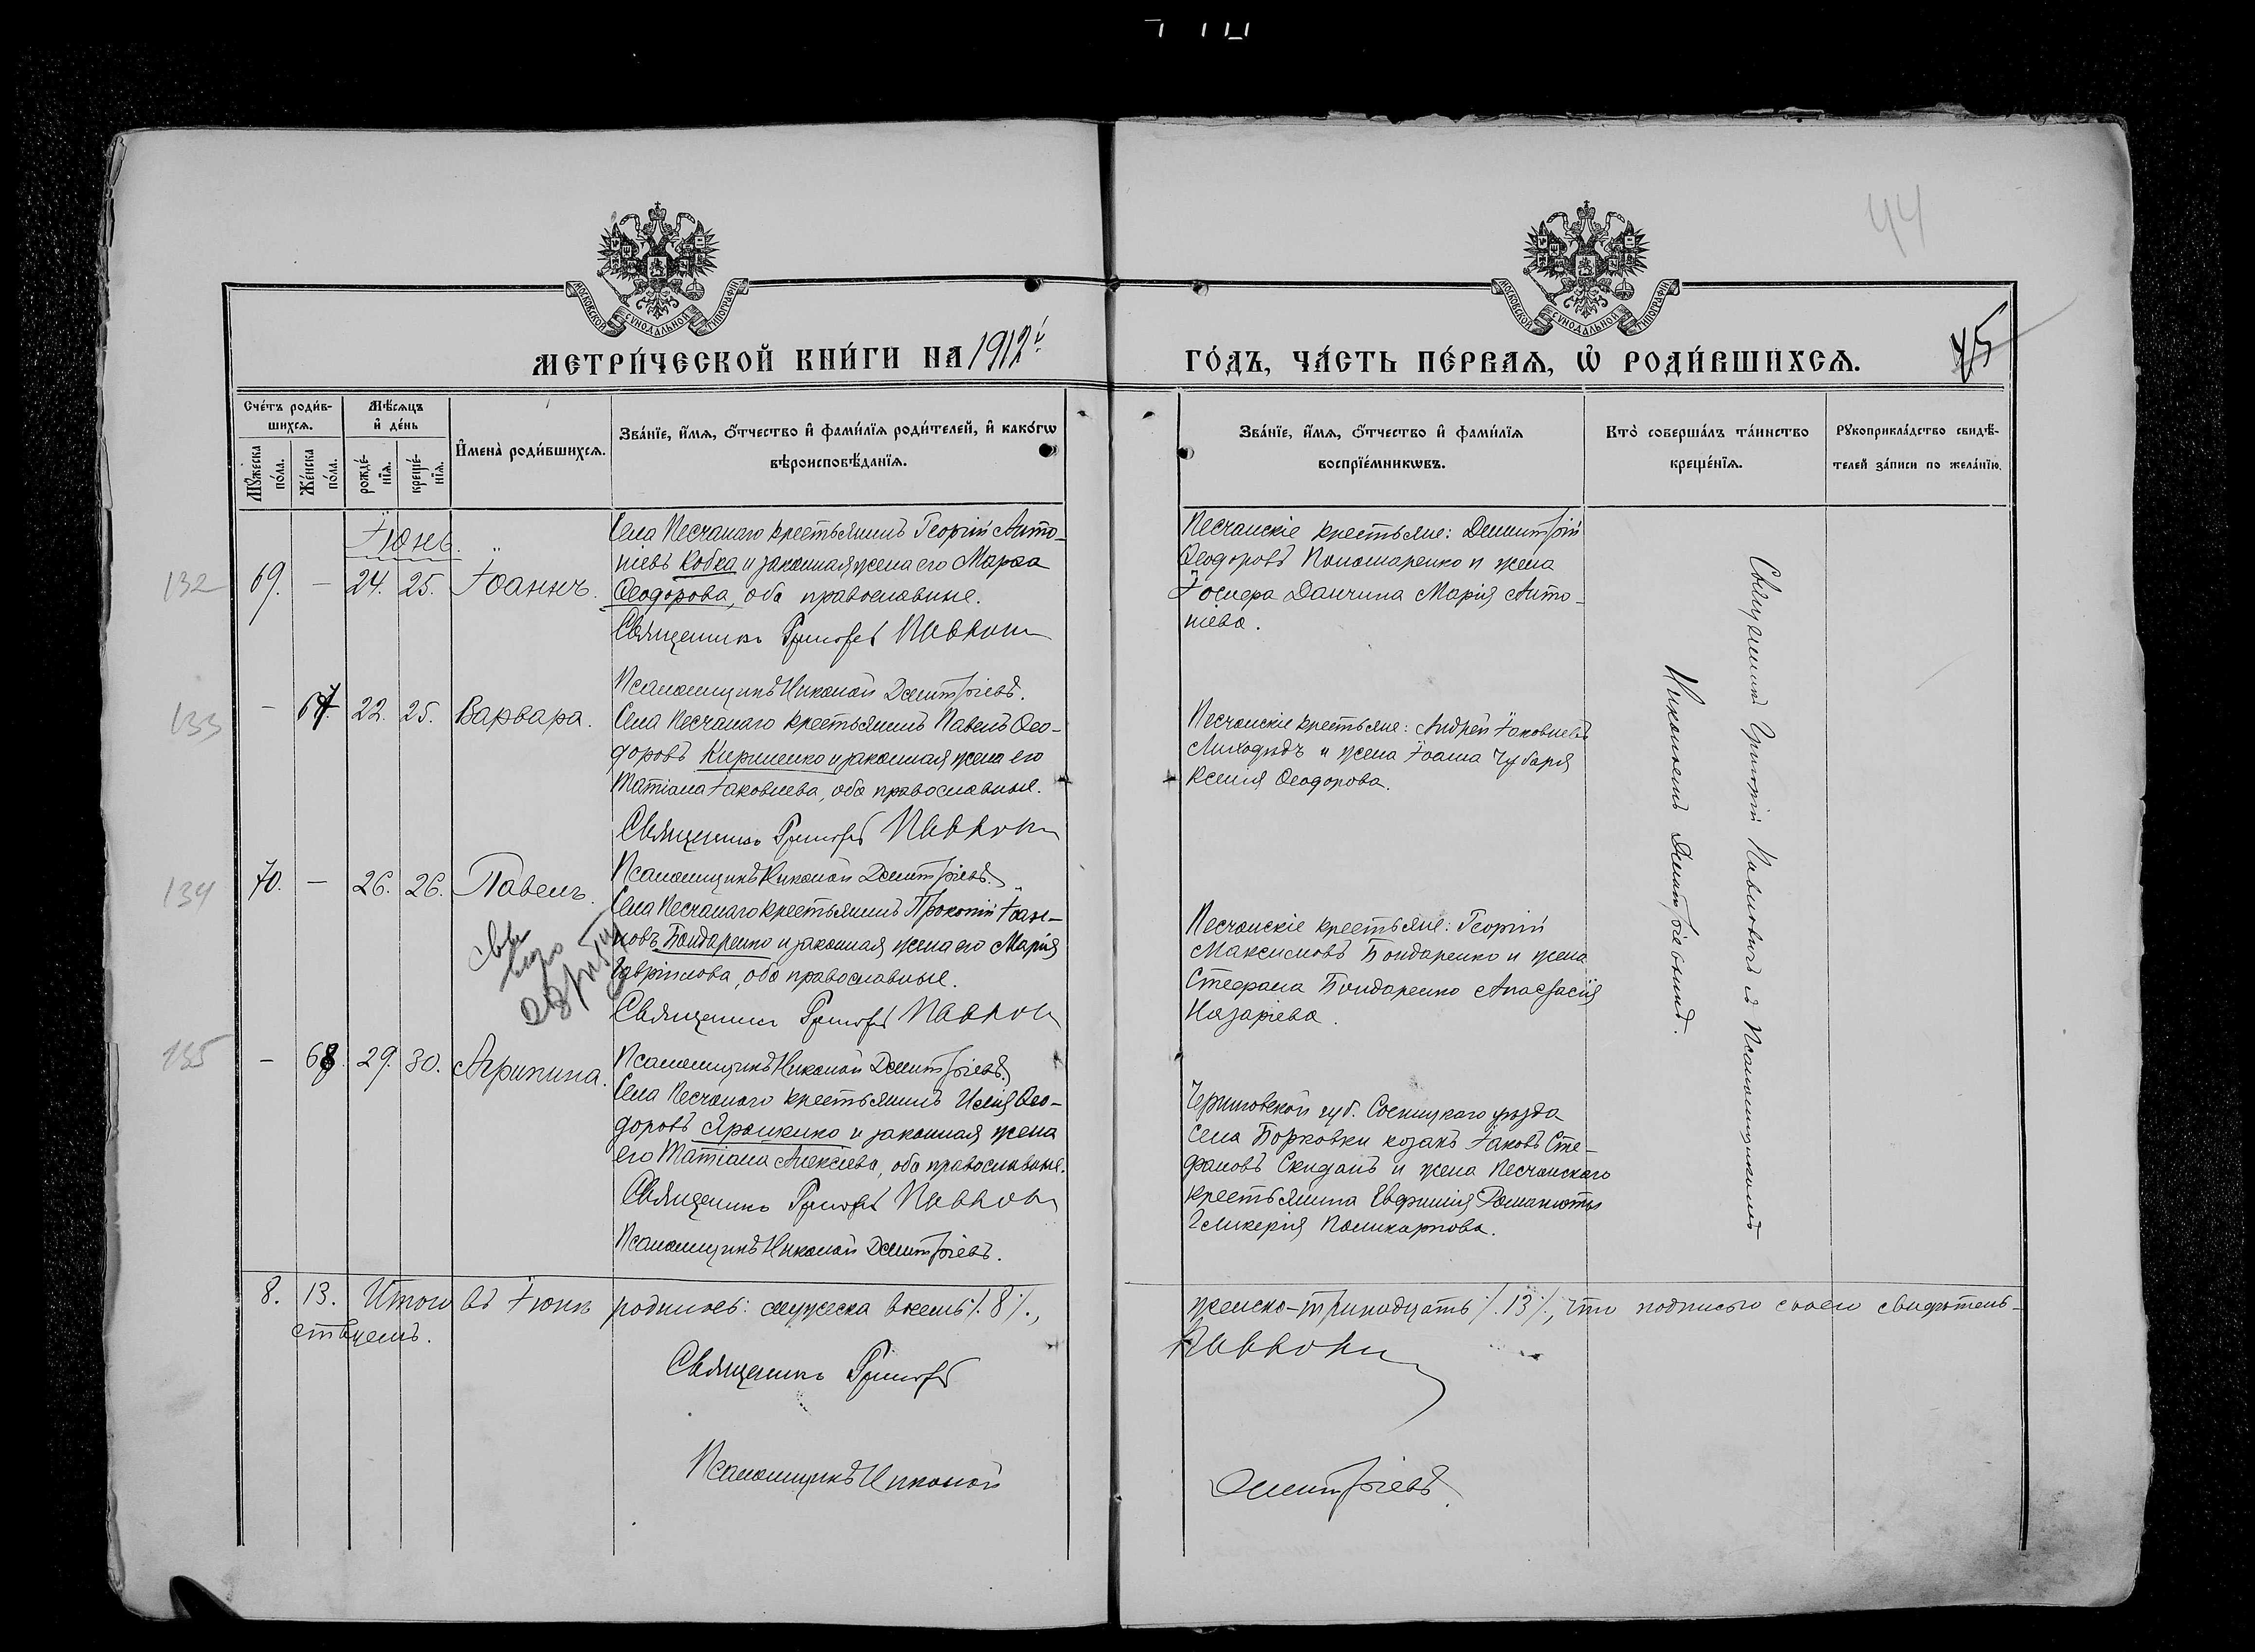 44
МОСКОВСКОЙ СѴНОДАЛЬНОЙ ТИПОГРАФІИ
МОСКОВСКОЙ СѴНОДАЛЬНОЙ ТИПОГРАФІИ
МЕТРИ́ЧЕСКОЙ КНИ́ГИ НА 1912й
ГО́ДЪ, ЧА́СТЬ ПЕ́РВАѦ, Ѡ҆ РОДИ́ВШИХСѦ.
45
Сче́тъ роди́в-
шихсѧ.
Мꙋ́жеска по́ла.
Же́нска по́ла.
Мѣ́сѧцъ
и҆ де́нь
рожде́-
нїѧ.
креще́-
нїѧ.
И҆мена̀ роди́вшихсѧ.
Зва́нїе, и҆́мѧ, ѻ҆́тчество и҆ фами́лїѧ роди́телей, и҆ како́гѡ
вѣроисповѣ́данїѧ.
Зва́нїе, и҆́мѧ, ѻ҆́тчество и҆ фами́лїѧ
воспрїе́мникѡвъ.
Кто̀ соверша́лъ та́инство
креще́нїѧ.
Рꙋкоприкла́дство свидѣ́-
телей за́писи по жела́нїю.
Іюнь.
132 69. — 24. 25. Іоаннъ.
Села Песчанаго крестьянинъ Георгій Анто-
ніевъ Кобка и законная жена его Марѳа
Ѳеодорова, оба православные.
Священникъ Григорій
Псаломщикъ Николай Димитріевъ.
Песчанскіе крестьяне: Димитрій
Ѳеодоровъ Пономаренко и жена
Марія Анто-
ніева.
133 — 67. 22. 25. Варвара.
Села Песчанаго крестьянинъ Павелъ Ѳео-
доровъ Кириченко и законная жена его
Татіана Іаковлева, оба православные.
Священникъ Григорій
Псаломщикъ Николай Димитріевъ.
Песчанскіе крестьяне: Андрей Іаковлевъ
Лиходѣдъ и жена Іоанна Чубаря
Ксенія Ѳеодорова.
134 70. — 26. 26. Павелъ.
Села Песчанаго крестьянинъ Прокопій Іоан-
новъ Бондаренко и законная жена его Марія
Гавріилова, оба православные.
Священникъ Григорій
Псаломщикъ Николай Димитріевъ.
Песчанскіе крестьяне: Георгій
Максимовъ Бондаренко и жена
Стефана Бондаренко Анастасія
Назаріева.
135 — 68. 29. 30. Агрипина.
Села Песчанаго крестьянинъ Илія Ѳео-
доровъ и законная жена
его Татіана Алексіева, оба православные.
Священникъ Григорій
Псаломщикъ Николай Димитріевъ.
Черниговской губ. Сосницкаго уѣзда
села Борковки козакъ Іаковъ Сте-
фановъ Скиданъ и жена Песчанскаго
крестьянина Евфимія
Гликерія Поликарпова.
Священникъ Григорій съ Псаломщикомъ
Николаемъ Димитріевымъ.
8. 13. Итого въ Іюнѣ родилось: мужеска восемь /8/.,
женска-тринадцать /13/., что подписью своею свидѣтель-
ствуемъ.
Священникъ Григорій
Псаломщикъ Николай Димитріевъ.